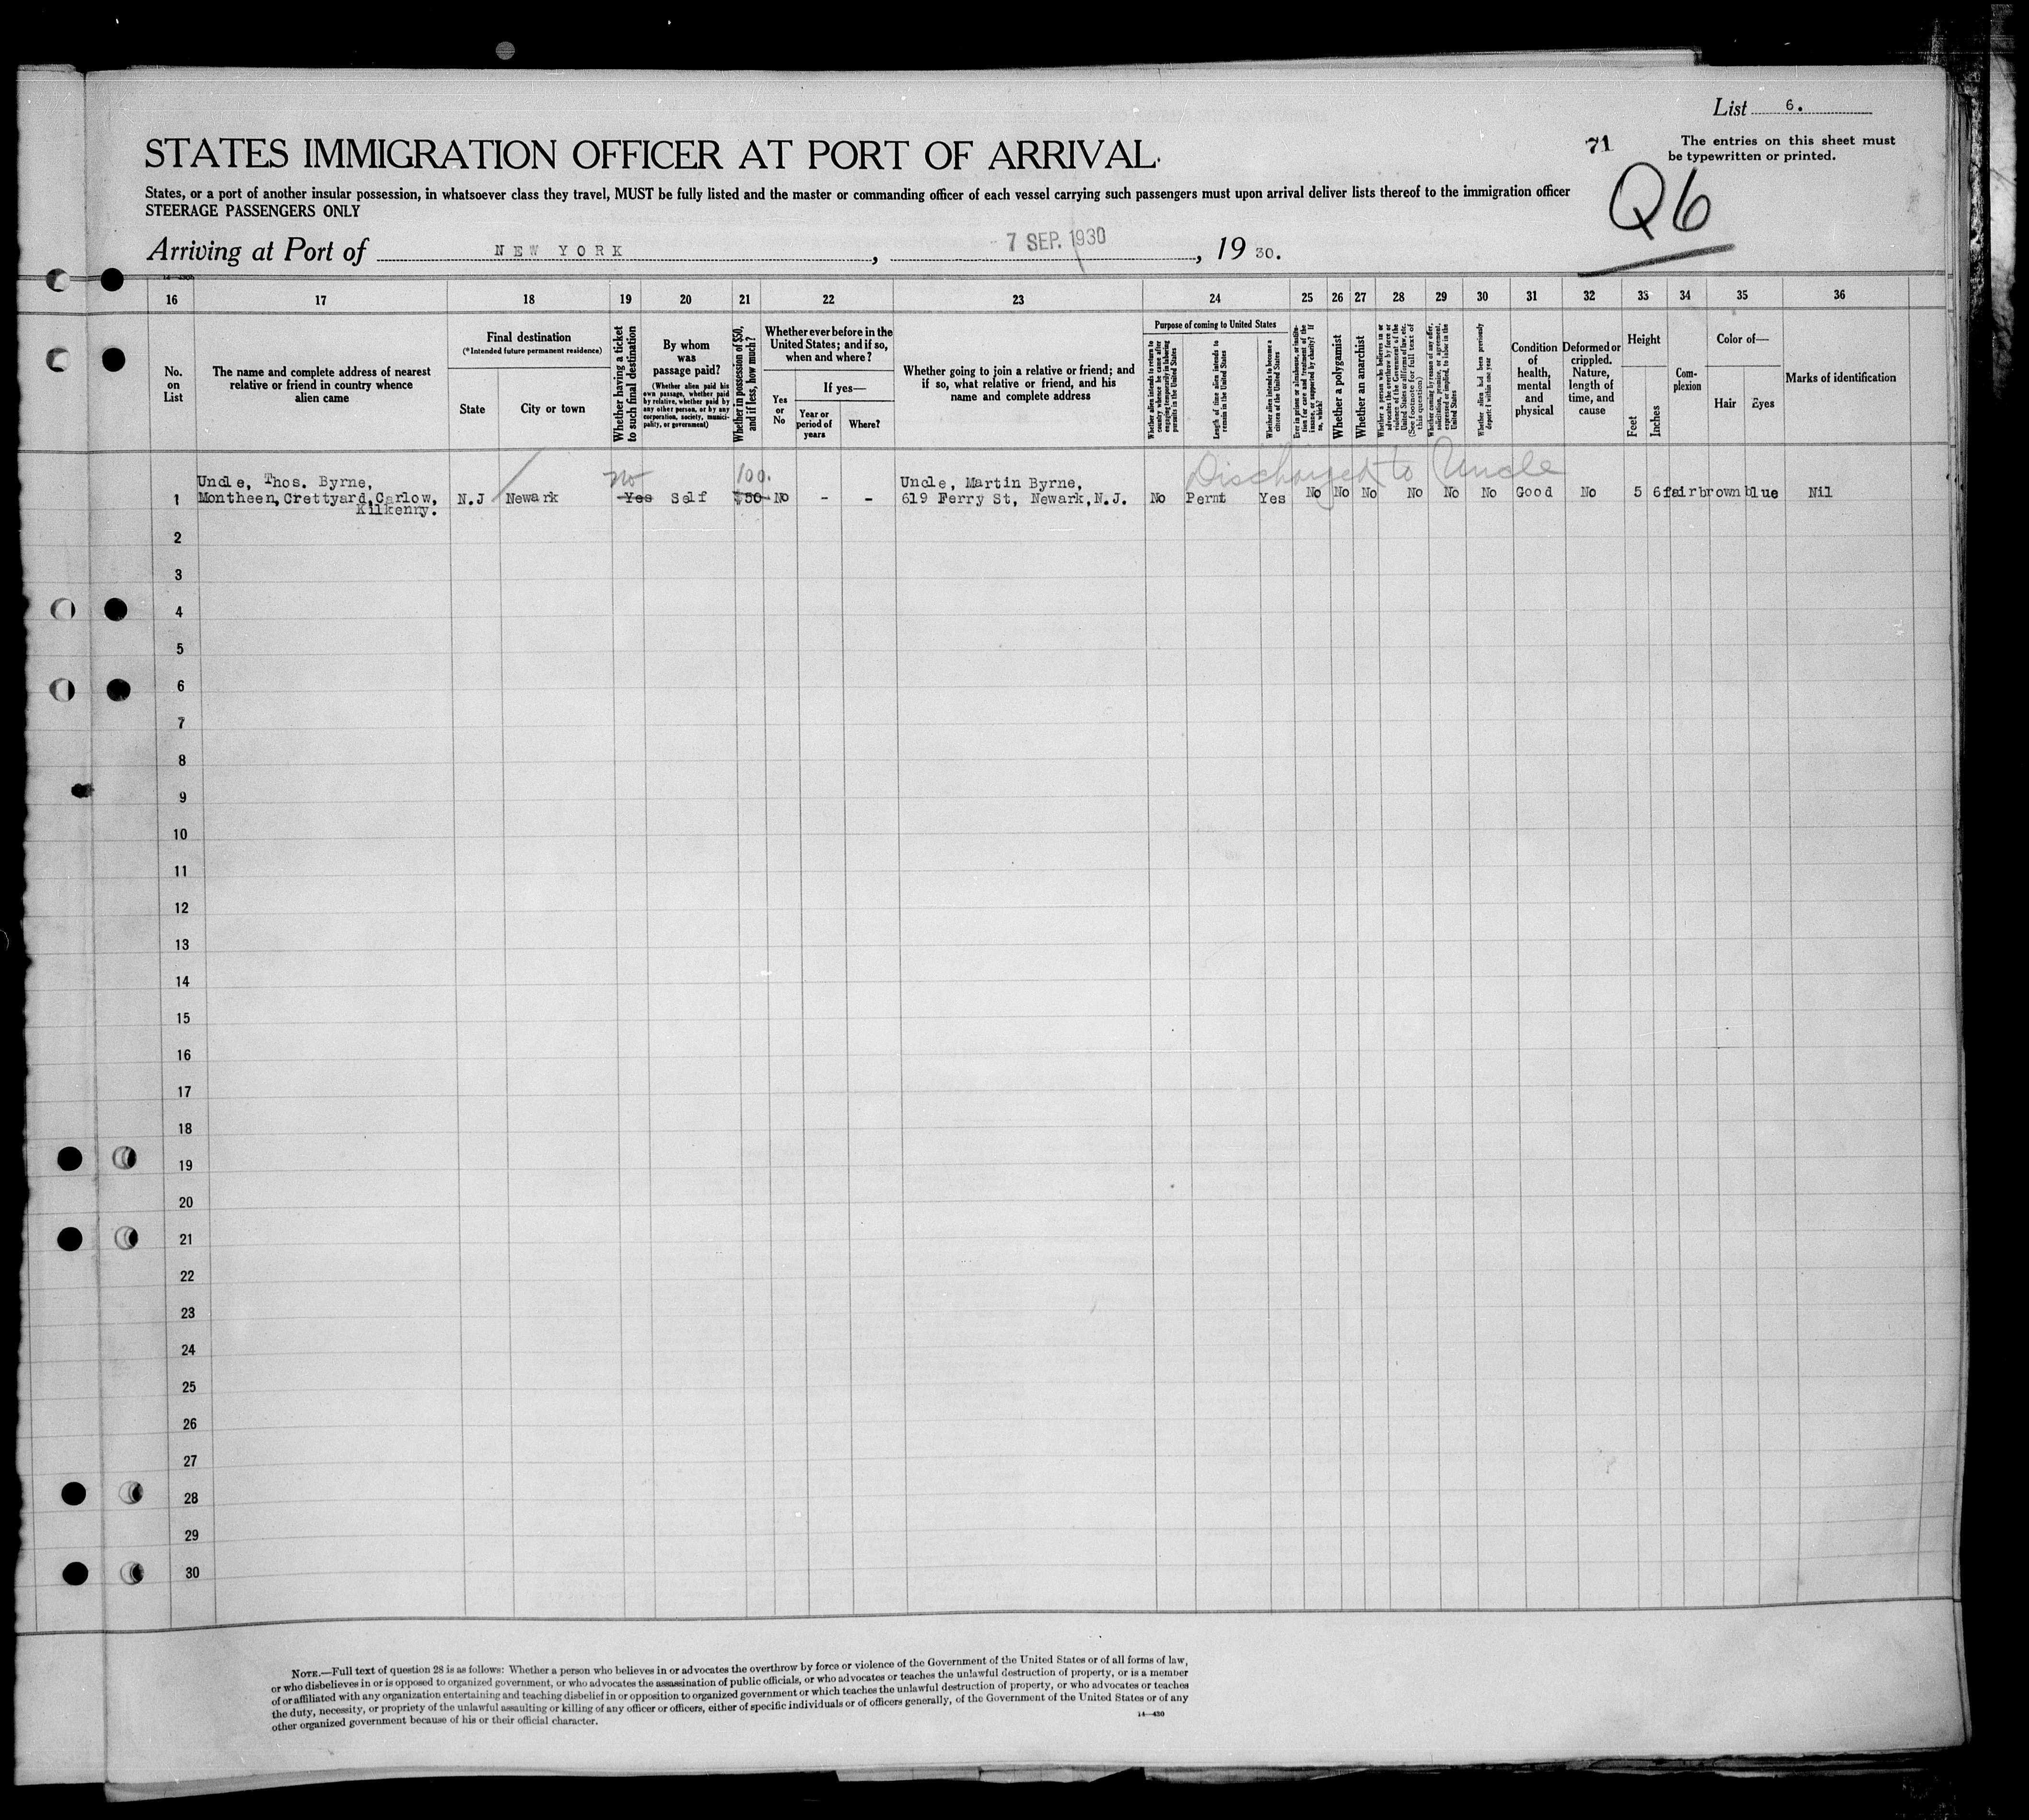 List 6.
71
The entries on this sheet must
be typewritten or printed.
Q6
STATES IMMIGRATION OFFICER AT PORT OF ARRIVAL.
States, or a port of another insular possession, in whatsoever class they travel, MUST be fully listed and the master or commanding officer of each vessel carrying such passengers must upon arrival deliver lists thereof to the immigration officer
STEERAGE PASSENGERS ONLY
Arriving at Port of NEW YORK, 7 SEP. 1930, 19 30.
16 17 18 19 20 21 22 23 24 25 26 27 28 29 30 31 32 33 34 35 36
No.
on
List
The name and complete address of nearest
relative or friend in country whence
alien came
Final destination
(*Intended future permanent residence)
State
City or town
Whether having a ticket
to such final destination
By whom
was
passage paid?
(Whether alien paid his
own passage, whether paid
by relative, whether paid by
any other person, or by any
corporation, society, munici-
pality, or government)
Whether in possession of $50,
and if less, how much?
Whether ever before in the
United States; and if so,
when and where?
Yes
or
No
If yes—
Year or
period of
years
Where?
Whether going to join a relative or friend; and
if so, what relative or friend, and his
name and complete address
Purpose of coming to United States
Whether alien intends to return to
country whence he came after
engaging temporarily in laboring
pursuits in the United States
Length of time alien intends to
remain in the United States
Whether alien intends to become a
citizen of the United States
Ever in prison or almshouse, or institu-
tion for care and treatment of the
insane, or supported by charity? If
so, which?
Whether a polygamist
Whether an anarchist
Whether a person who believes in or
advocates the overthrow by force or
violence of the Government of the
United States or all forms of law, etc.
(See footnote for full text of
this question)
Whether coming by reason of any offer,
solicitation, promise, or agreement,
expressed or implied, to labor in the
United States
Whether alien had been previously
deported within one year
Condition
of
health,
mental
and
physical
Deformed or
crippled.
Nature,
length of
time, and
cause
Height
Feet
Inches
Com-
plexion
Color of—
Hair
Eyes
Marks of identification
No
100.
Discharged to Uncle
Uncle, Thos. Byrne,
Uncle, Martin Byrne,
1 Montheen, Crettyard, Carlow, N.J Newark Yes Self $50 No - - 619 Ferry St, Newark, N.J. No Permt Yes No No No No No No Good No 5 6 fair brown blue Nil
Kilkenny.
2
3
4
5
6
7
8
9
10
11
12
13
14
15
16
17
18
19
20
21
22
23
24
25
26
27
28
29
30
NOTE.—Full text of question 28 is as follows: Whether a person who believes in or advocates the overthrow by force or violence of the Government of the United States or of all forms of law,
or who disbelieves in or is opposed to organized government, or who advocates the assassination of public officials, or who advocates or teaches the unlawful destruction of property, or is a member
of or affiliated with any organization entertaining and teaching disbelief in or opposition to organized government or which teaches the unlawful destruction of property, or who advocates or teaches
the duty, necessity, or propriety of the unlawful assaulting or killing of any officer or officers, either of specific individuals or of officers generally, of the Government of the United States or of any
other organized government because of his or their official character.
14—430